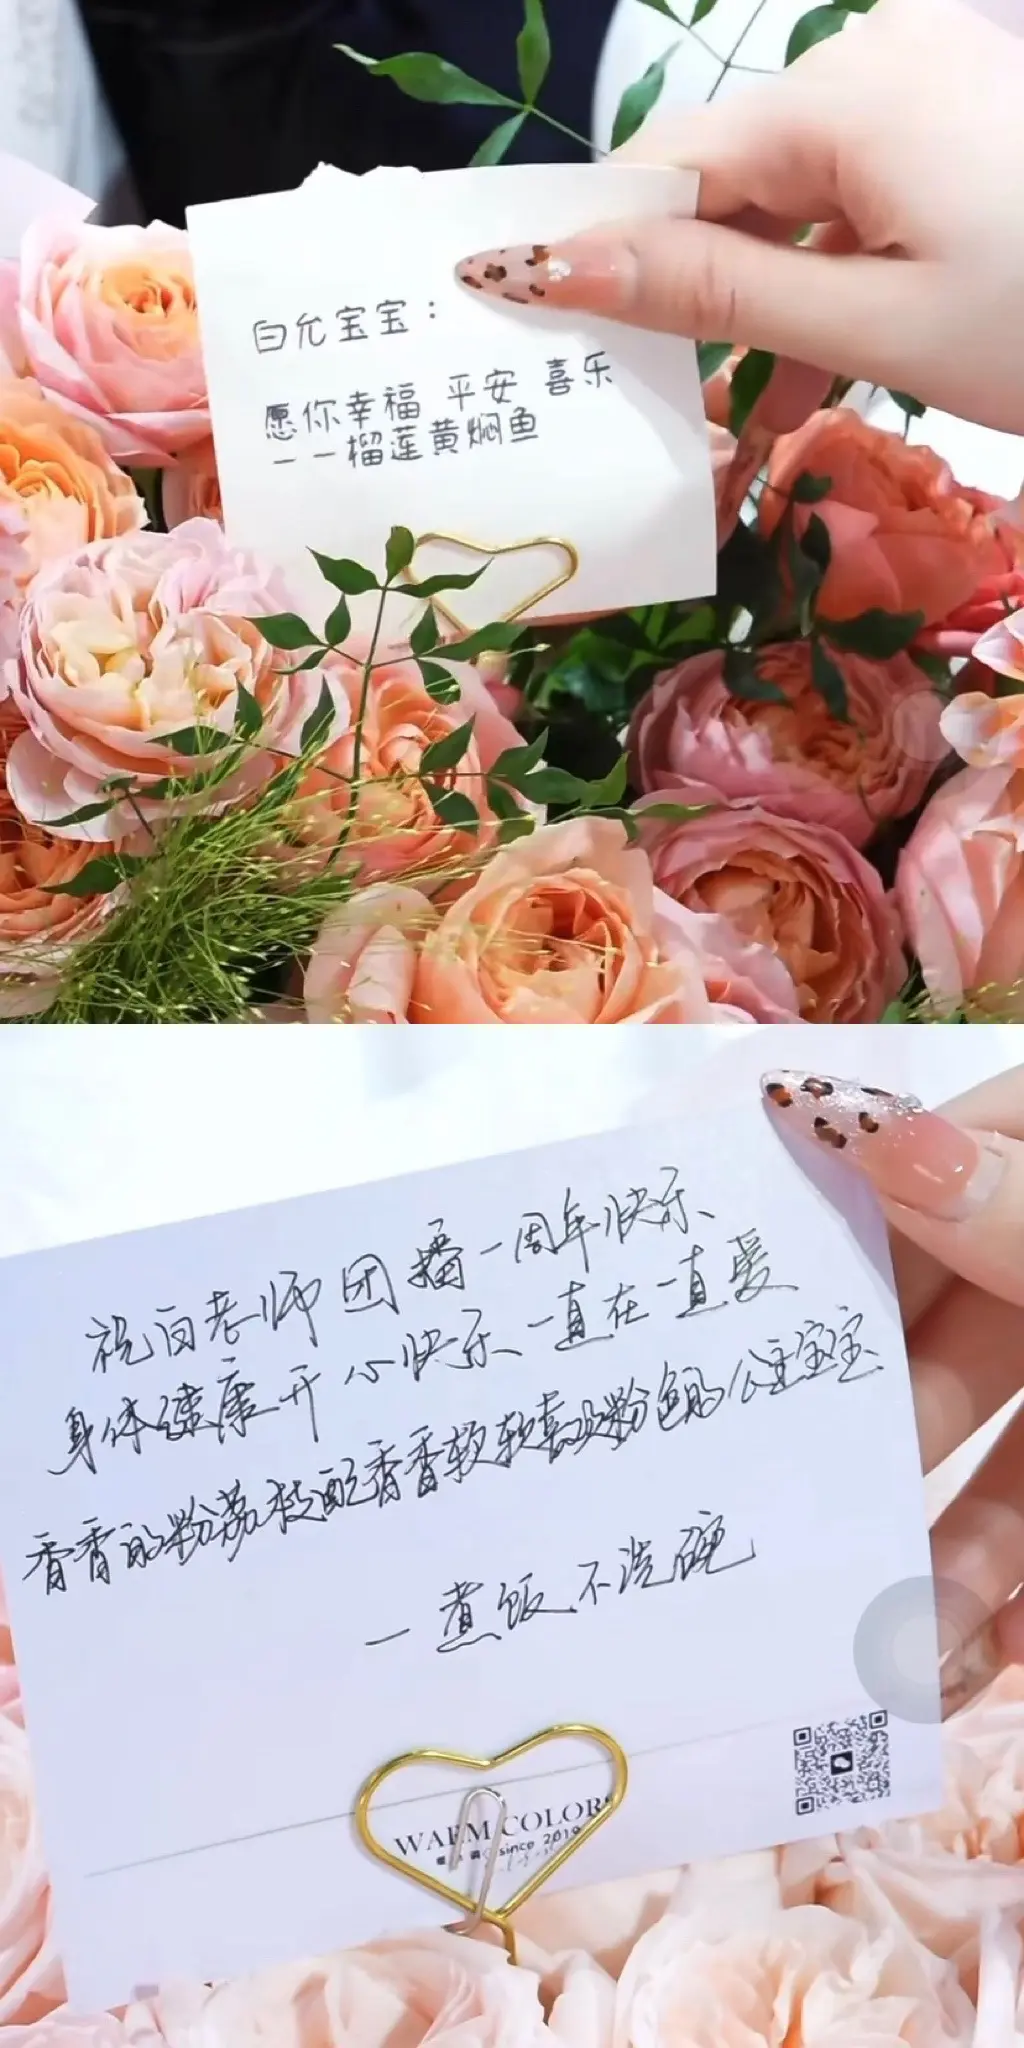 白允宝宝：
愿你幸福 平安 喜乐
——榴莲黄焖鱼
祝白老师团播一周年快乐、
身体健康开心快乐、一直在一直爱
香香的粉荔枝配香香软软喜欢粉色的公主宝宝
一煮饭不洗碗
WARM COLORS
since 2019